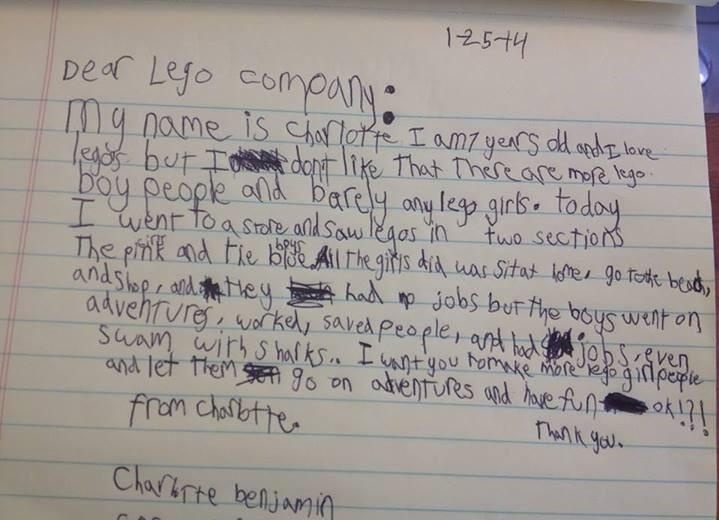 1-25-14
Dear Lego company:
My name is Charlotte I am 7 years old and I love
legos but I don't like that there are more lego
boy people and barely any lego girls. today
I went to a store and saw legos in two sections
The pink girls and the blue boys. All the girls did was sit at home, go to the beach,
and shop, and they had no jobs but the boys went on
adventures, worked, saved people, and had jobs, even
swam with sharks.. I want you to make more lego girl people
and let them go on adventures and have fun ok!?!
from charlotte. Thank you.
Charlotte benjamin